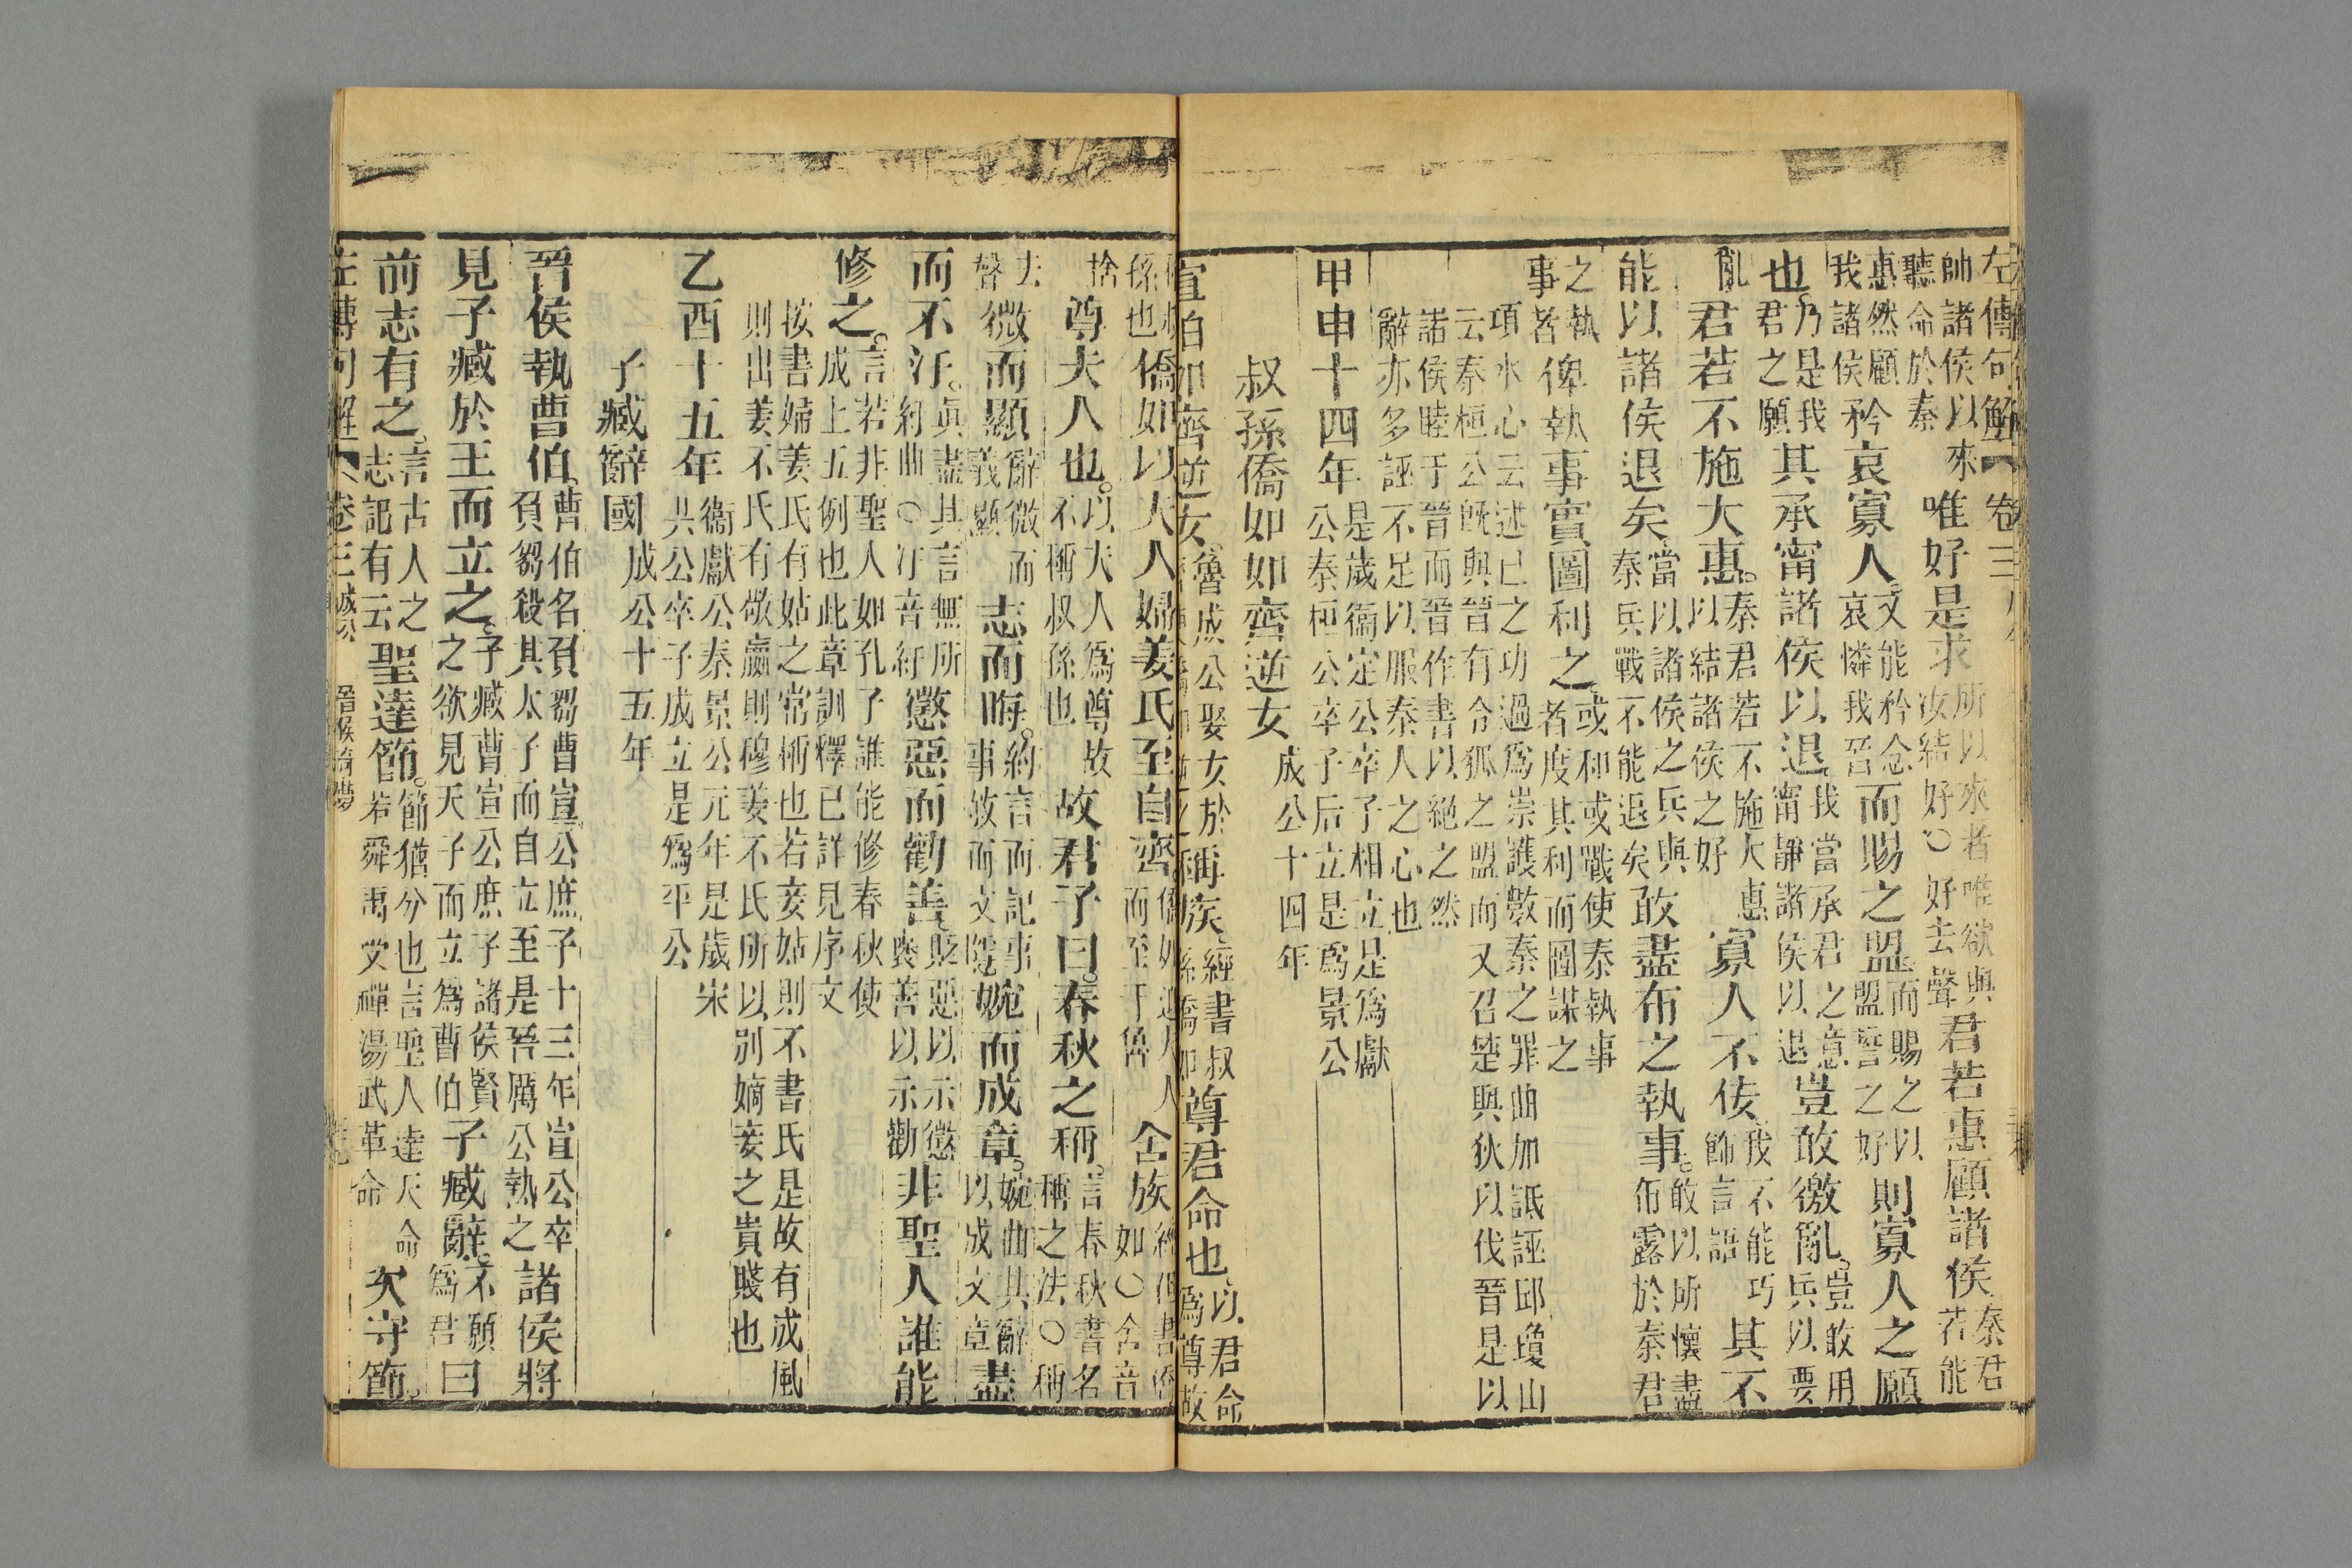 左傳句解 卷三
帥諸侯以來聽命於秦唯好是求所以來者唯欲與汝結好○好去聲君若惠顧諸侯秦君若能
惠然顧我諸侯矜哀寡人又能矜念哀憐我晉而賜之盟而賜之以盟誓之好則寡人之願
也乃是我君之願其承甯諸侯以退我當承君之意甯靜諸侯以退豈敢徼亂豈敢用兵以要
亂君若不施大惠秦君若不施大惠以結諸侯之好寡人不佞我不能巧飾言語其不
能以諸侯退矣當以諸侯之兵與秦兵戰不能退矣敢盡布之執事敢以所懷盡布露於秦君
之執事者俾執事實圖利之或和或戰使秦執事者度其利而圖謀之
項水心云述己之功過爲崇護數秦之罪曲加詆誣邱瓊山
云秦桓公既與晉有令狐之盟而又召楚與狄以伐晉是以
諸侯睦于晉而晉作書以絕之然
辭亦多誣不足以服秦人之心也
甲申十四年是歲衞定公卒子相立是爲獻公秦桓公卒子后立是爲景公
叔孫僑如如齊逆女成公十四年
宣伯如齊逆女魯成公娶女於稱族經書叔孫僑如尊君命也以君命爲尊故
孫也僑如以夫人婦姜氏至自齊而至于魯舍族如○舍音
捨尊夫人也以夫人爲尊故不稱叔孫也故君子曰春秋之稱言春秋書名稱之法○稱
去聲微而顯辭微而義顯志而晦約言而記事事敘而文隱婉而成章婉曲其辭以成文章盡
而不汙直盡其言無所紆曲○汙音紆懲惡而勸善貶惡以示懲褒善以示勸非聖人誰能
修之言若非聖人如孔子誰能修春秋使成上五例也此章訓釋已詳見序文
按書婦姜氏有姑之常稱也若妾姑則不書氏是故有成風
則出姜不氏有敬嬴則穆姜不氏所以別嫡妾之貴賤也
乙酉十五年衞獻公秦景公元年是歲宋共公卒子成立是爲平公
子臧辭國成公十五年
晉侯執曹伯曹伯名負芻曹宣公庶子十三年宣公卒負芻殺其太子而自立至是晉厲公執之諸侯將
見子臧於王而立之子臧曹宣公庶子諸侯賢之欲見天子而立爲曹伯子臧辭不願爲君曰
前志有之言古人之志記有云聖達節節猶分也言聖人達天命若舜禹受禪湯武革命次守節
左傳句解 卷三 成公